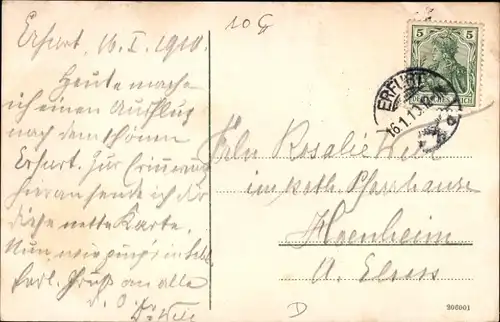 Erfurt, 16. I. 1910.
Heute mache
ich einen Ausflug
nach dem schönen
Erfurt. Zur Erinnerung
hieran sende ich dir
diese nette Karte.
Nun, wie
Gruß an alle
10 G
5 5
DEUTSCHES REICH
ERFURT
16.1.10.
Frln Rosalie
im kath. Pfarrhause
Hoenheim
U. Elsass
D
206001